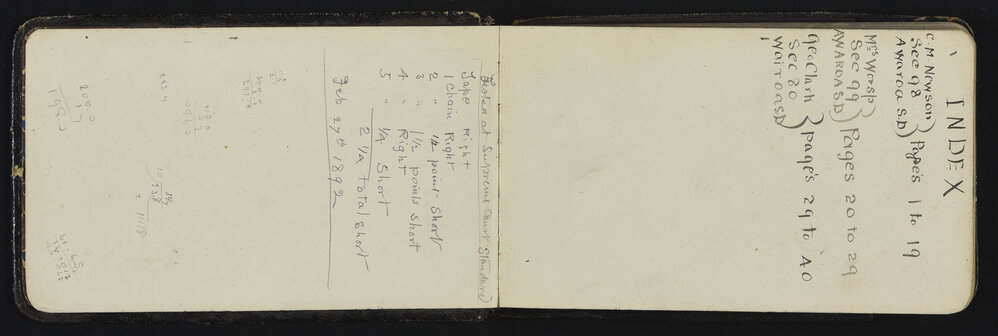 INDEX
C. M Newson
Sec 98
Awaroa SD
Pages 1 to 19
Mrs Worsp
Sec 99
AWAROA SD
Pages 20 to 29
Geo Clark
Sec 80
Wairoa SD
Page's 29 to 40
Tested at Supreme Court Standard
Tape Right
1 Chain Right
2 " 1/2 point short
3 " 1 1/2 points short
4 " Right
5 " 1/4 short
2 1/4 total short
Feb 27th 1892
2000
17
1983